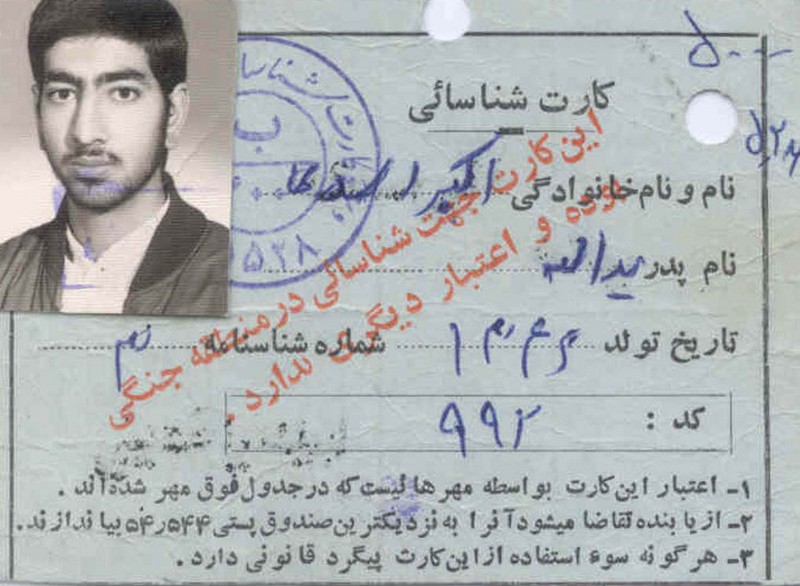 کارت شناسائی
نام و نام خانوادگی اکبر
نام پدر یداله
تاریخ تولد شماره شناسنامه
کد : ۹۹۲
این کارت جهت شناسائی در منطقه جنگی
بوده و اعتبار دیگری ندارد .
۱- اعتبار این کارت بواسطه مهرهائیست که در جدول فوق مهر شده‌اند .
۲- از یابنده تقاضا میشود آنرا به نزدیکترین صندوق پستی بیاندازند.
۳- هرگونه سوء استفاده از این کارت پیگرد قانونی دارد .